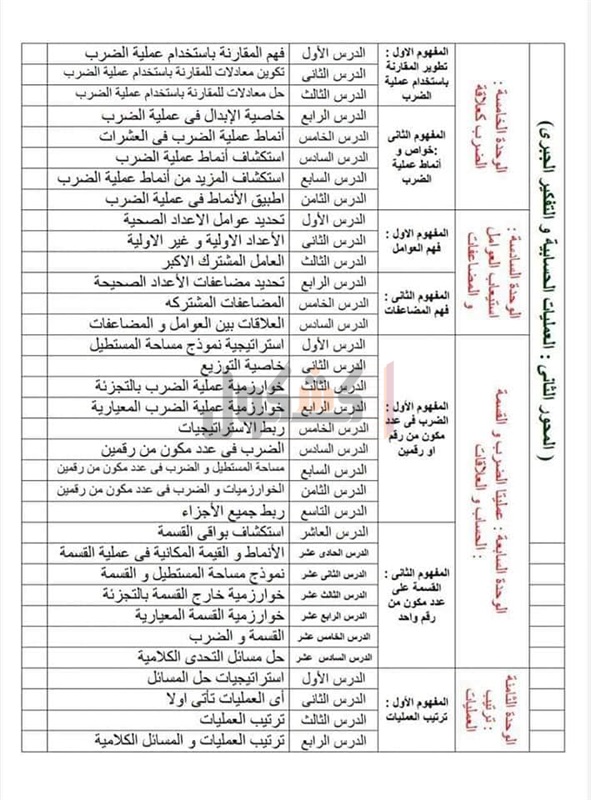 ( المحور الثانى : العمليات الحسابية و التفكير الجبرى)
الوحدة الخامسة :
الضرب كعلاقة
المفهوم الاول :
تطوير المقارنة
باستخدام عملية
الضرب
الدرس الأول فهم المقارنة باستخدام عملية الضرب
الدرس الثانى تكوين معادلات للمقارنة باستخدام عملية الضرب
الدرس الثالث حل معادلات للمقارنة باستخدام عملية الضرب
المفهوم الثانى
:خواص و
أنماط عملية
الضرب
الدرس الرابع خاصية الإبدال فى عملية الضرب
الدرس الخامس أنماط عملية الضرب فى العشرات
الدرس السادس استكشاف أنماط عملية الضرب
الدرس السابع استكشاف المزيد من أنماط عملية الضرب
الدرس الثامن اطبيق الأنماط فى عملية الضرب
الوحدة السادسة :
استيعاب العوامل
و المضاعفات
المفهوم الاول :
فهم العوامل
الدرس الأول تحديد عوامل الاعداد الصحية
الدرس الثانى الأعداد الاولية و غير الاولية
الدرس الثالث العامل المشترك الاكبر
المفهوم الثانى :
فهم المضاعفات
الدرس الرابع تحديد مضاعفات الأعداد الصحيحة
الدرس الخامس المضاعفات المشتركه
الدرس السادس العلاقات بين العوامل و المضاعفات
الوحدة السابعة : عمليتا الضرب و القسمة
: الحساب و العلاقات
المفهوم الأول :
الضرب فى عدد
مكون من رقم
او رقمين
الدرس الأول استراتيجية نموذج مساحة المستطيل
الدرس الثانى خاصية التوزيع
الدرس الثالث خوارزمية عملية الضرب بالتجزئة
الدرس الرابع خوارزمية عملية الضرب المعيارية
الدرس الخامس ربط الاستراتيجيات
الدرس السادس الضرب فى عدد مكون من رقمين
الدرس السابع مساحة المستطيل و الضرب فى عدد مكون من رقمين
الدرس الثامن الخوارزميات و الضرب فى عدد مكون من رقمين
الدرس التاسع ربط جميع الأجزاء
المفهوم الثانى :
القسمة على
عدد مكون من
رقم واحد
الدرس العاشر استكشاف بواقى القسمة
الدرس الحادى عشر الأنماط و القيمة المكانية فى عملية القسمة
الدرس الثانى عشر نموذج مساحة المستطيل و القسمة
الدرس الثالث عشر خوارزمية خارج القسمة بالتجزئة
الدرس الرابع عشر خوارزمية القسمة المعيارية
الدرس الخامس عشر القسمة و الضرب
الدرس السادس عشر حل مسائل التحدى الكلامية
الوحدة الثامنة
: ترتيب
العمليات
المفهوم الأول :
ترتيب العمليات
الدرس الأول استراتيجيات حل المسائل
الدرس الثانى أى العمليات تأتى اولا
الدرس الثالث ترتيب العمليات
الدرس الرابع ترتيب العمليات و المسائل الكلامية
كشكول